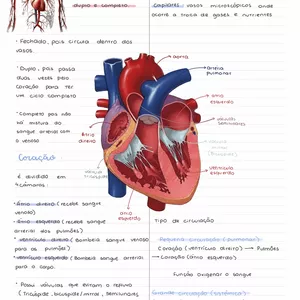 duplo e completo.
capilares vasos microscópicos onde
ocorre a troca de gases e nutrientes
• Fechado, pois circula dentro dos
vasos.
• Duplo, pois passa
duas vezes pelo
coração para ter
um ciclo completo
• Completo pois não
há mistura do
sangue arterial com
o venoso
Coração
É dividido em
4 câmaras:
• Átrio direito (recebe sangue
venoso)
• Átrio esquerdo (recebe sangue
arterial dos pulmões)
• ventrículo direito (Bombeia sangue venoso
para os pulmões)
• ventrículo esquerdo (Bombeia sangue arterial
para o corpo.
• Possui válvulas que evitam o refluxo
(Tricúspide, bicúspide/mitral, semilunares
aorta
artéria
pulmonar
átrio
esquerdo
válvulas
semilunares
ventrículo
esquerdo
Átrio
direito
ventrículo
direito
Tipo de circulação
Pequena circulação (pulmonar)
Coração (ventrículo direito) → Pulmões
→ Coração (átrio esquerdo)
Função oxigenar o sangue
Grande circulação (sistêmica)